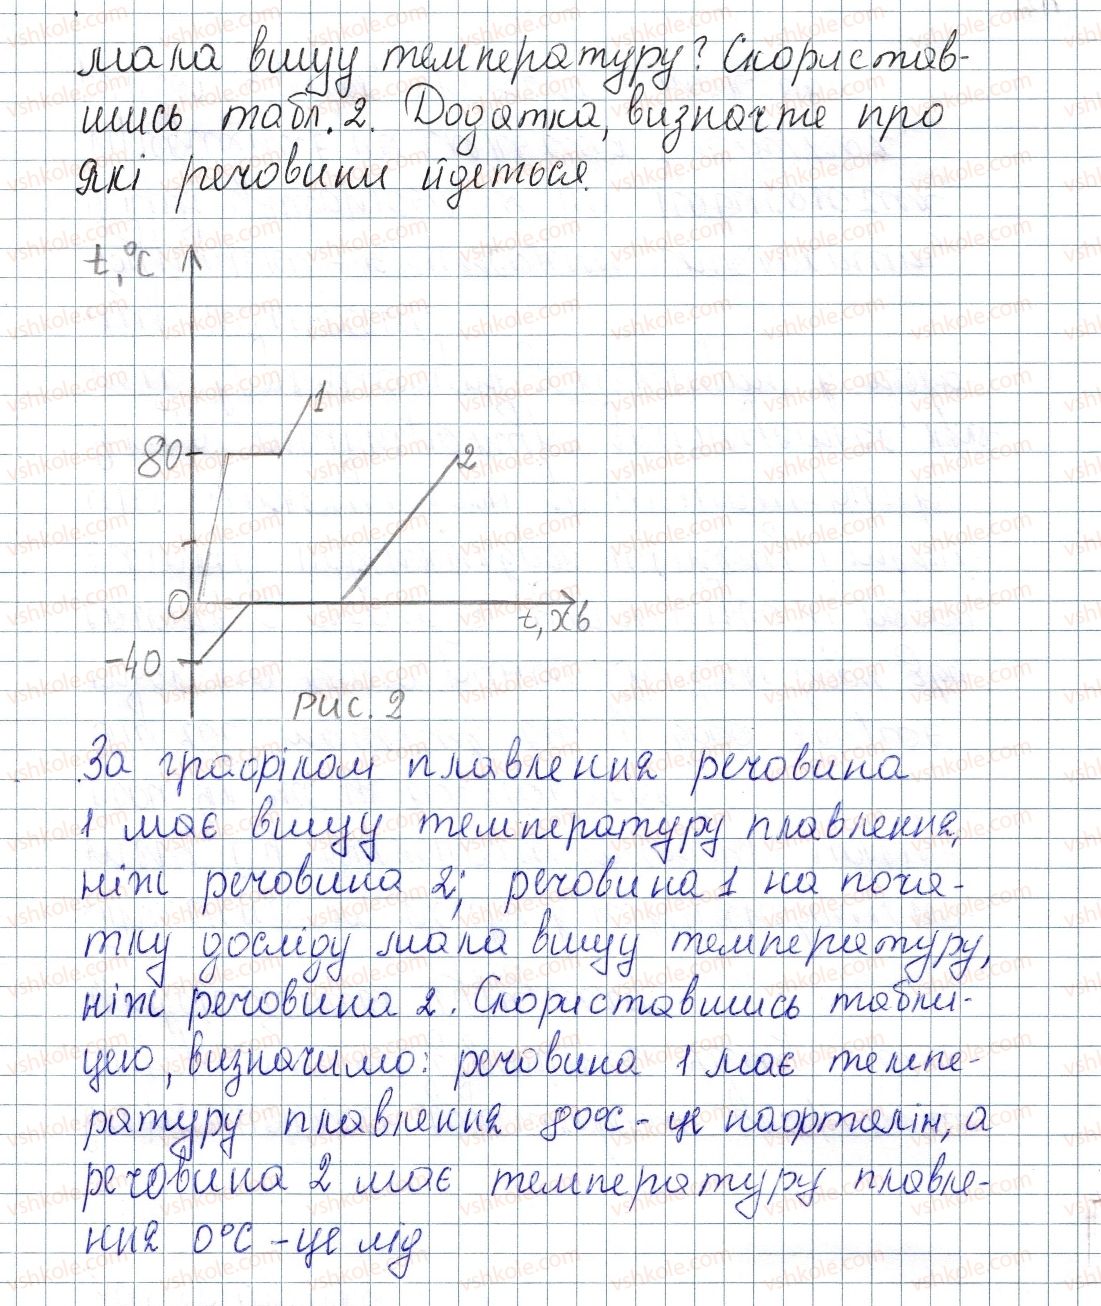 мала вищу температуру? Скористав-
шись табл. 2. Додатка, визначте про
які речовини йдеться.
t, °C
1
80
2
0
t, хв
-40
Рис. 2
За графіком плавлення речовина
1 має вищу температуру плавлення,
ніж речовина 2; речовина 1 на поча-
тку досліду мала вищу температуру,
ніж речовина 2. Скориставшись табли-
цею, визначимо: речовина 1 має темпе-
ратуру плавлення 80°C - це нафталін, а
речовина 2 має температуру плавле-
ння 0°C - це лід